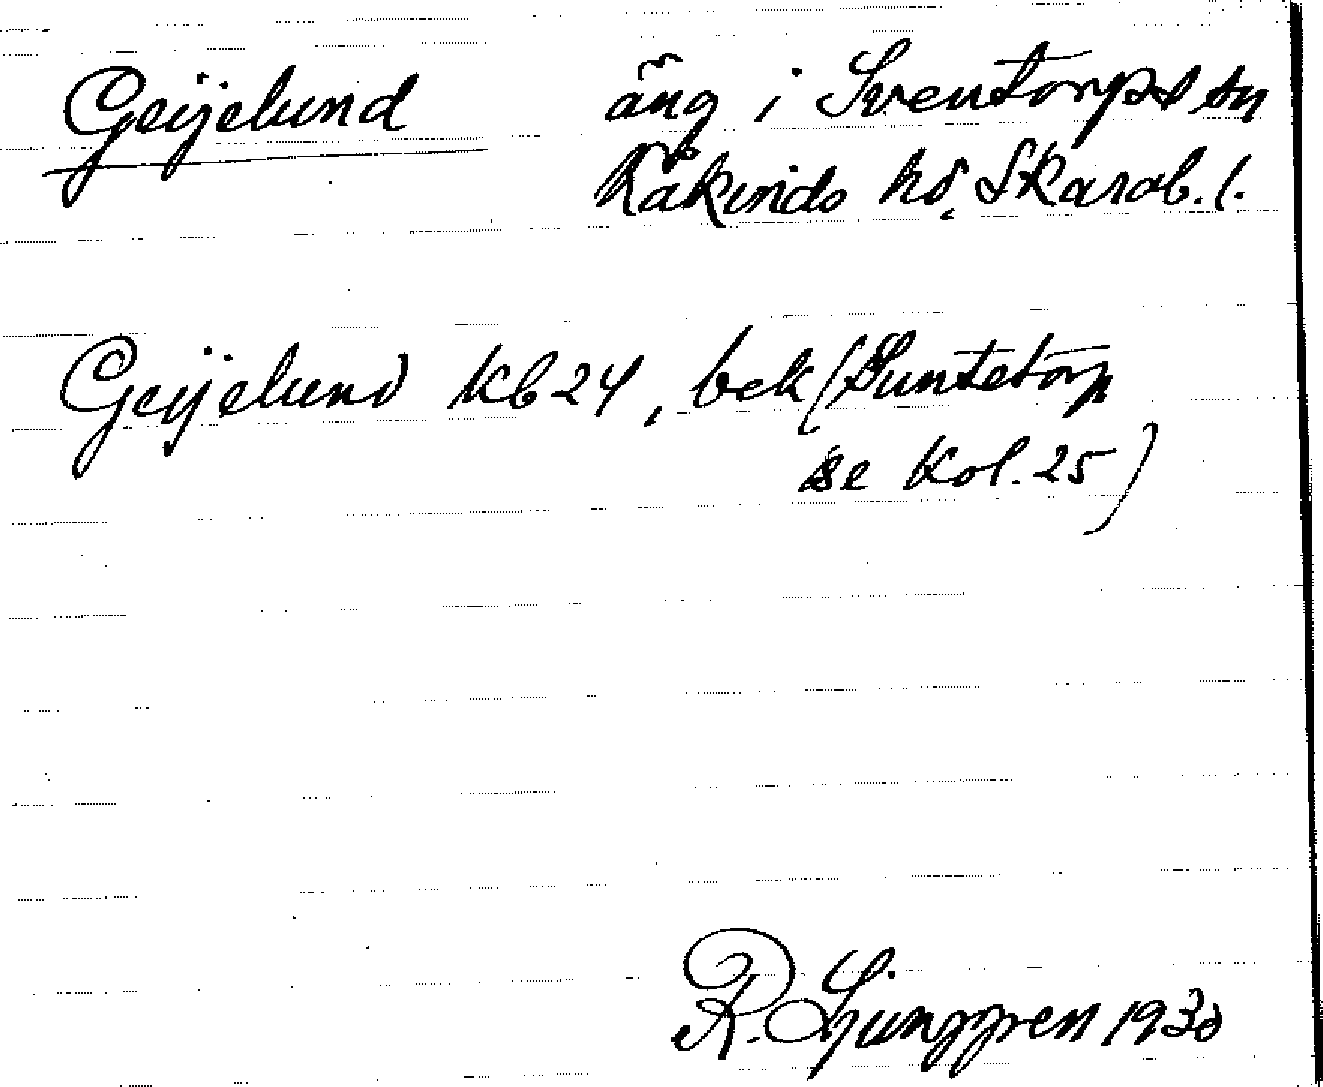 Geijelund äng i Sventorps sn
Kåkinds hd. Skarab. l.
Geijelund Kb 24, bek (Suntetorp
se Kol. 25)
R. Ljunggren 1930